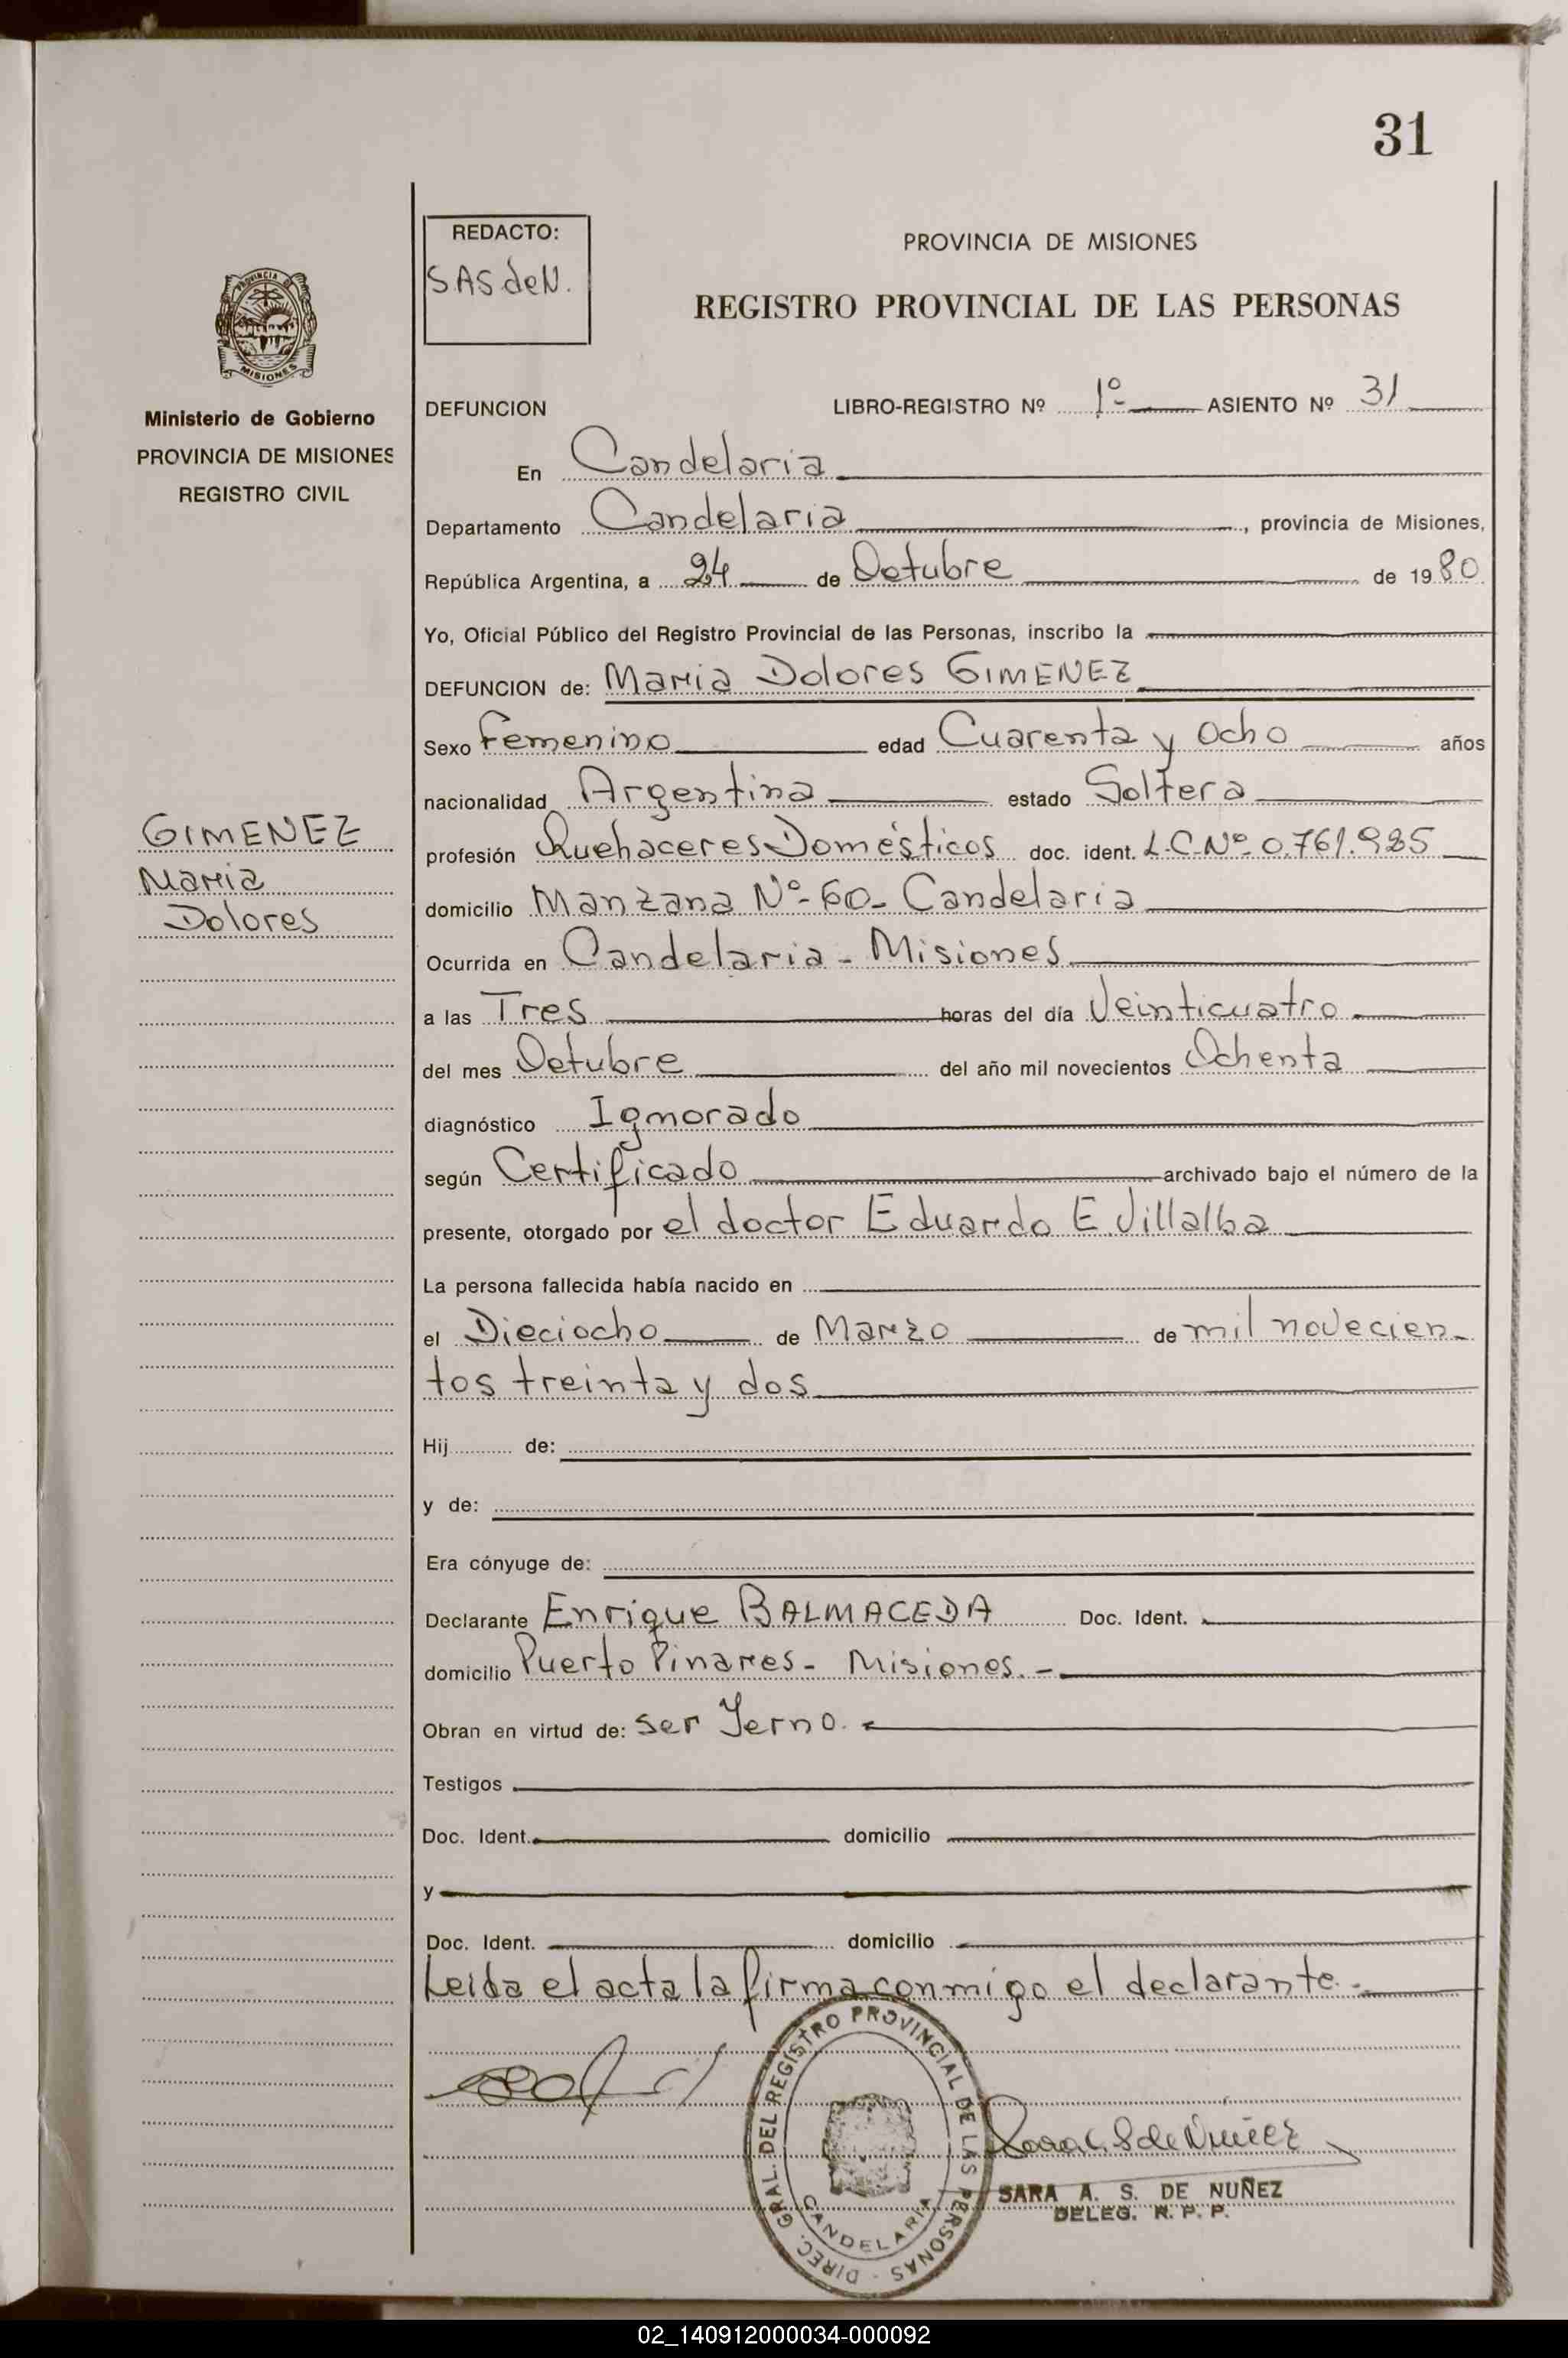 31
REDACTO:
SAS deN.
PROVINCIA DE MISIONES
REGISTRO PROVINCIAL DE LAS PERSONAS
PROVINCIA DE
MISIONES
Ministerio de Gobierno
PROVINCIA DE MISIONES
REGISTRO CIVIL
GIMENEZ
Maria
Dolores
DEFUNCION LIBRO-REGISTRO Nº 1º- ASIENTO Nº 31
En Candelaria
Departamento Candelaria, provincia de Misiones,
República Argentina, a 24 de Octubre de 1980
Yo, Oficial Público del Registro Provincial de las Personas, inscribo la
DEFUNCION de: Maria Dolores GIMENEZ
Sexo Femenino edad Cuarenta y Ocho años
nacionalidad Argentina estado Soltera
profesión Quehaceres Domésticos doc. ident. L.C.Nº 0.761.985
domicilio Manzana Nº-60- Candelaria
Ocurrida en Candelaria - Misiones
a las Tres horas del día Veinticuatro
del mes Octubre del año mil novecientos Ochenta
diagnóstico Ignorado
según Certificado archivado bajo el número de la
presente, otorgado por el doctor Eduardo E. Villalba
La persona fallecida había nacido en
el Dieciocho de Marzo de mil novecien-
tos treinta y dos
Hij de:
y de:
Era cónyuge de:
Declarante Enrique BALMACEDA Doc. Ident.
domicilio Puerto Pinares - Misiones. -
Obran en virtud de: ser Yerno. -
Testigos
Doc. Ident. domicilio
y
Doc. Ident. domicilio
Leida el acta la firma conmigo el declarante. -
DIREC. GRAL. DEL REGISTRO PROVINCIAL DE LAS PERSONAS -
CANDELARIA
SARA A. S. DE NUÑEZ
DELEG. R. P. P.
02_140912000034-000092